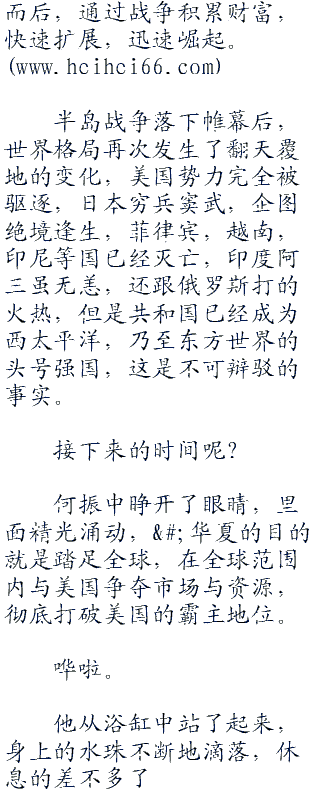 而后，通过战争积累财富，
快速扩展，迅速崛起。
(www.hcihci66.com)
半岛战争落下帷幕后，
世界格局再次发生了翻天覆
地的变化，美国势力完全被
驱逐，日本穷兵窦武，企图
绝境逢生，菲律宾，越南，
印尼等国已经灭亡，印度阿
三虽无恙，还跟俄罗斯打的
火热，但是共和国已经成为
西太平洋，乃至东方世界的
头号强国，这是不可辩驳的
事实。
接下来的时间呢？
何振中睁开了眼睛，里
面精光涌动，&#;华夏的目的
就是踏足全球，在全球范围
内与美国争夺市场与资源，
彻底打破美国的霸主地位。
哗啦。
他从浴缸中站了起来，
身上的水珠不断地滴落，休
息的差不多了